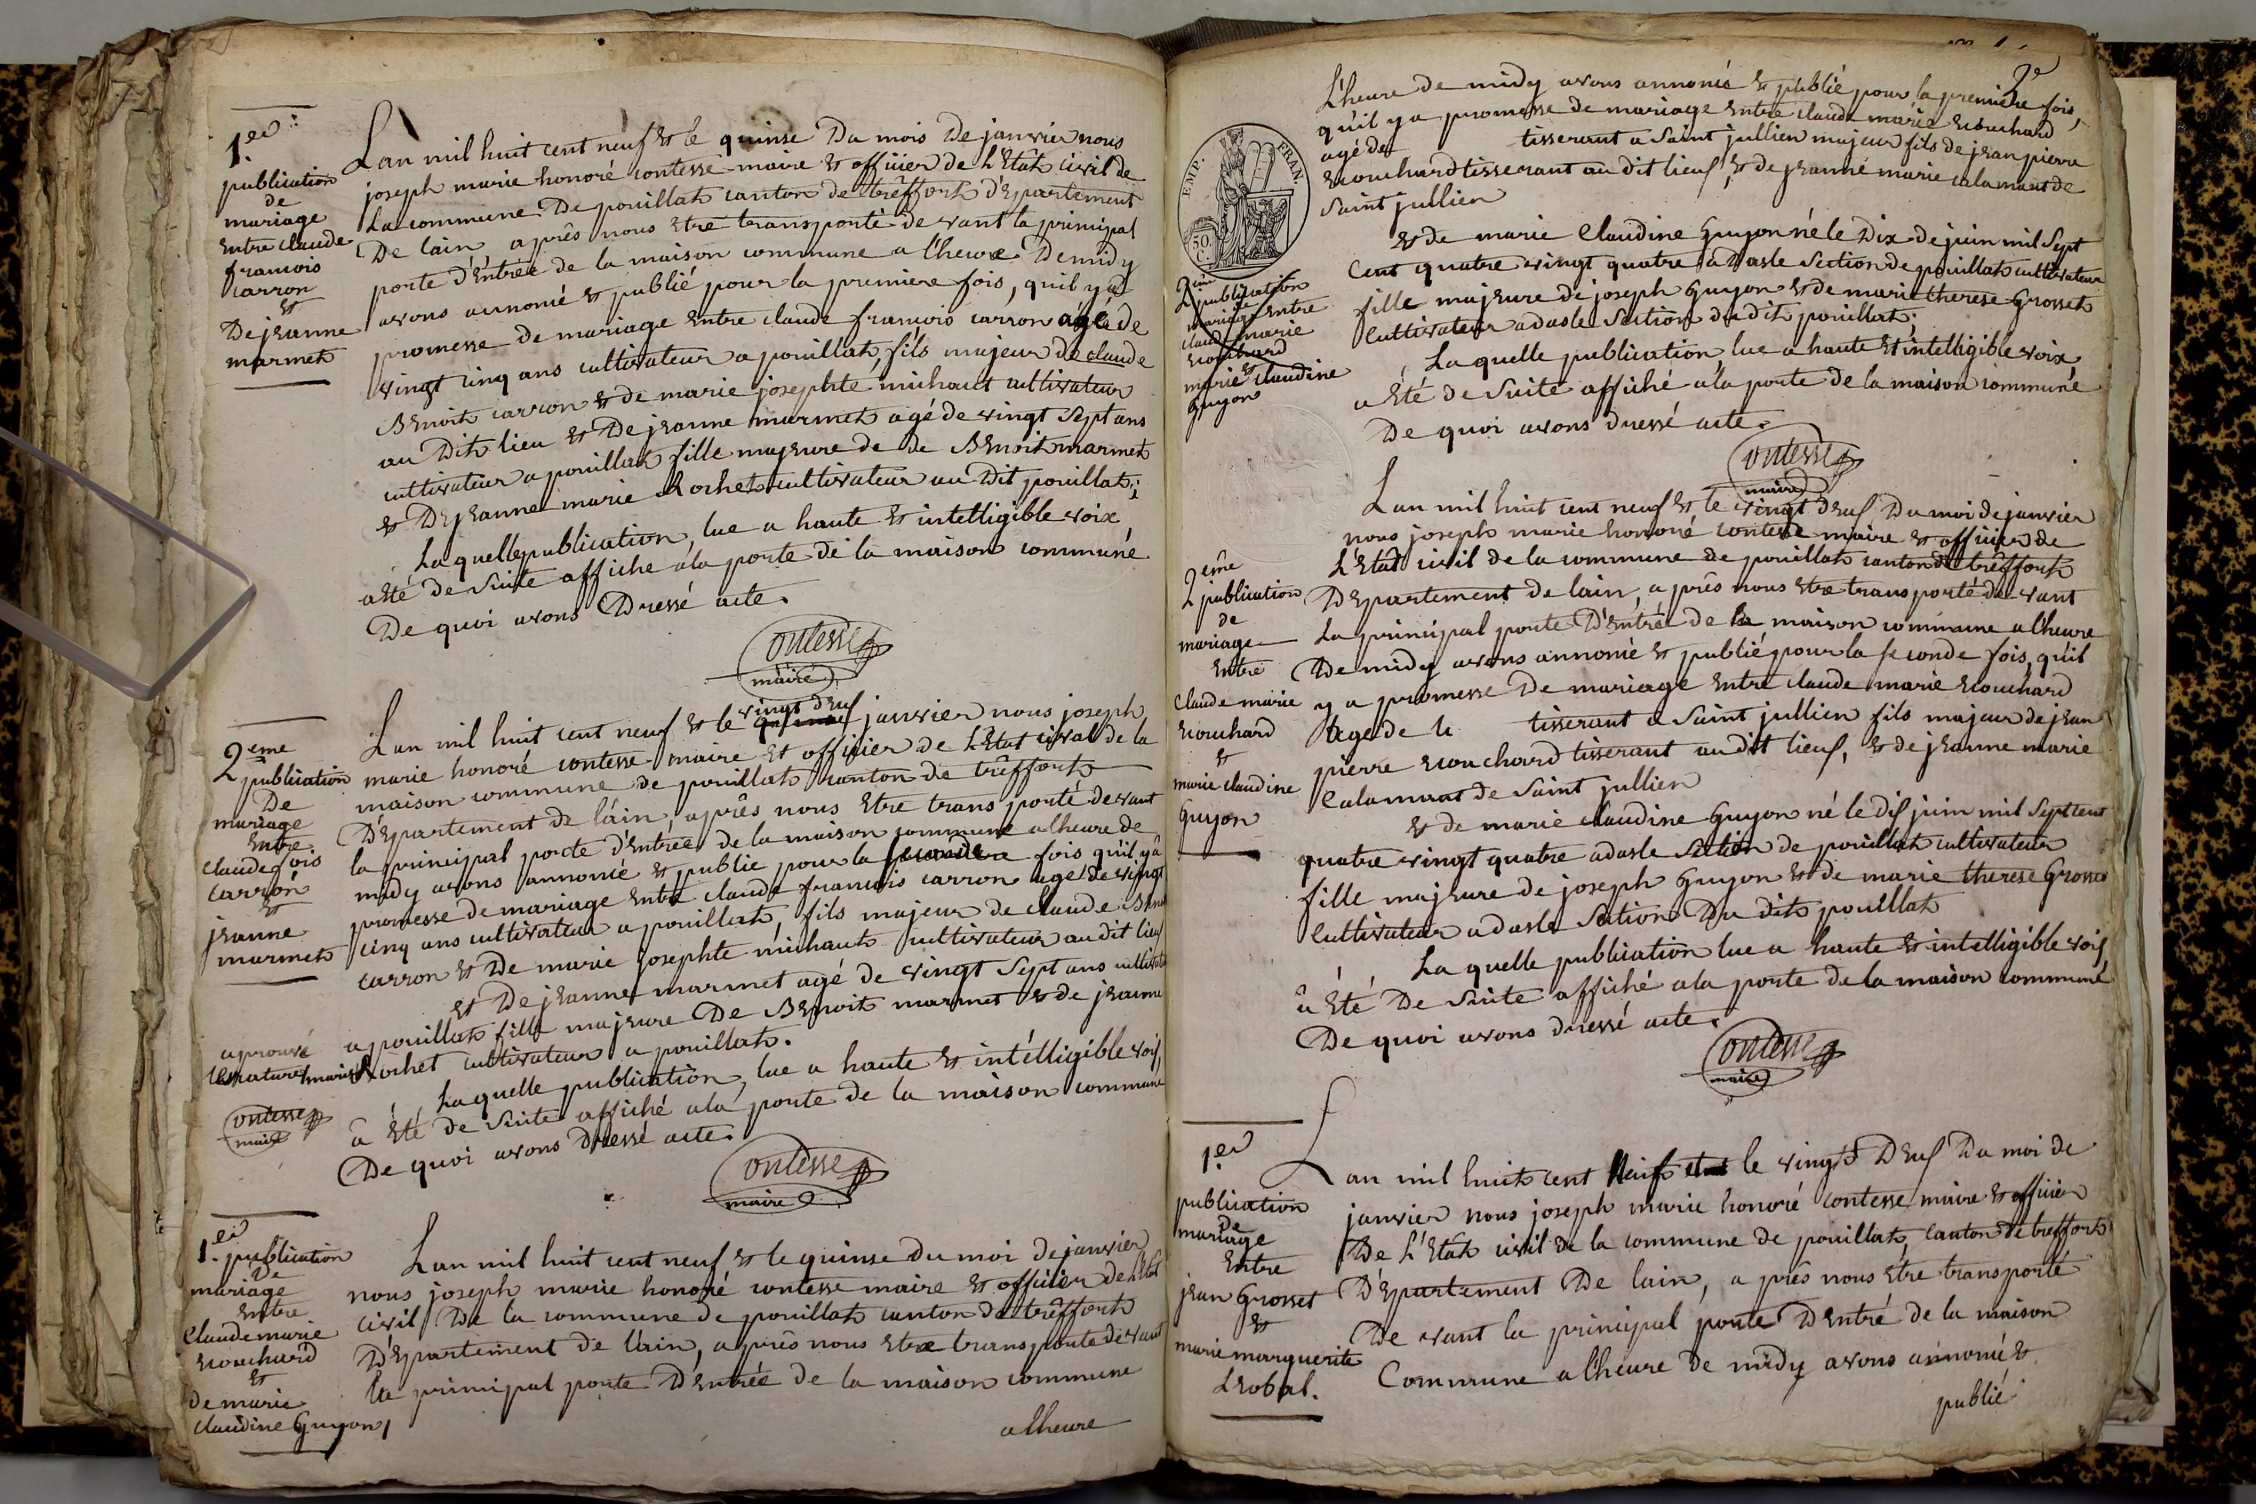 1.er
publication
de
mariage
Entre claude
francois
carron
et
De jeanne
marmet
Lan mil huit cent neuf et le quinse Du mois De janvier nous
joseph marie honoré contesse maire et officier de L'Etat civil de
La commune De pouillat canton de treffort d'Epartement
De lain après nous Etre transporté de vant la principal
porte d'Entrée de la maison commune a l'heure De midy
avons annoncé et publié pour la premiere fois, quil y a
promesse de mariage Entre claude francois carron agé de
vingt cinq ans cultivateur a pouillat, fils majeur de claude
Benoit carron et de marie josephte michaut cultivateur
au Dit lieu et De jeanne marmet agé de vingt Sept ans
cultivateur a pouillat fille majeure de de Benoit marmet
et De jeanne marie Rochet cultivateur au Dit pouillat;
La quelle publication, lue a haute et intelligible voix,
a Eté de Suite affiche a la porte de la maison commune
De quoi avons Dressé acte.
Contesse
maire
2eme
publication
De
mariage
Entre
claude fois
Carron
et
jeanne
marmet
aprouvé
les ratures
Contesse
maire
Lan mil huit cent neuf et le vingt deuf janvier nous joseph
marie honoré contesse maire et officier de L'Etat civil de la
maison commune de pouillat canton de treffort
D'Epartement de lain, après nous Etre trans porté de vant
la principal porte d'Entrée de la maison commune a lheure de
midy avons annoncé et publié pour la seconde fois qu'il y a
promesse de mariage Entre claude francois carron agé de vingt
cinq ans cultivateur a pouillat, fils majeur de claude Benoit
carron et De marie josephte michaut cultivateur au dit lieu
et De jeanne marmet agé de vingt Sept ans cultivate
a pouillat fille majeure De Benoit marmet et de jeanne
marie Rochet cultivateur a pouillat.
La quelle publication, lue a haute et intélligible voif,
à Eté de Suite affiché a la porte de la maison commune
De quoi avons Dressé acte.
Contesse
maire
1.er publication
De
mariage
Entre
Claude marie
Ecouchard
et
de marie
claudine Guyon
Lan mil huit cent neuf et le quinse du moi de janvier
nous joseph marie honoré contesse maire et officier de L'Etat
civil De la commune de pouillat canton de treffort
D'Epartement de lain, après nous Etre transporté de vant
la principal porte D'Entrée de la maison commune
a lheure
2e
L'heure de midy avons annoncé et publié pour la premiere fois,
qu'il y a promesse de mariage Entre claude marie Ecouchard
agé de tisserant a Saint jullien majeur fils de jean pierre
Ecouchard tisserant au dit lieuf, et de jeanne marie calamant de
Saint jullien
et de marie Claudine Guyon né le Dix de juin mil Sept
Cent quatre vingt quatre a Dasle Section de pouillat cultivateur
fille majeure de joseph Guyon et de marie therese Grosset
Cultivateur a dasle Section du dit pouillat;
La quelle publication lue a haute et intelligible voix
a Eté de Suite affiché a la porte de la maison commune
De quoi avons dressé acte.
Contesse
maire
EMP. FRAN.
50.
C.
2eme
publication
de
mariage Entre
claude marie
Ecouchard
et
marie Claudine
Guyon
2eme
publication
de
mariage
Entre
Claude marie
Ecouchard
et
marie claudine
Guyon
Lan mil huit cent neuf et le vingt deuf Du moi de janvier
nous joseph marie honoré contesse maire et officier de
L'Etat civil de la commune de pouillat canton de treffort
D'Epartement de lain, a près nous Etre transporté de vant
La principal porte D'Entré de la maison commune a lheure
De midy avons annoncé et publié pour la seconde fois, qu'il
y a promesse De mariage Entre claude marie Ecouchard
age de tisserant a Saint jullien fils majeur de jean
pierre Ecouchard tisserant au dit lieuf, et de jeanne marie
Calamant de Saint jullien
et de marie claudine Guyon né le dif juin mil Sept cent
quatre vingt quatre a dasle Section de pouillat cultivateur
fille majeure de joseph Guyon et de marie therese Grosset
Cultivateur a dasle Section Du dit pouillat
La quelle publication lue a haute et intelligible voif
à Eté De Suite affiché a la porte de la maison commune
De quoi avons dressé acte.
Contesse
maire
1.er
publication
de
mariage
Entre
jean Grosset
et
marie marguerite
Leobal.
Lan mil huit cent Neuf et le vingt Deuf Du moi de
janvier nous joseph marie honoré contesse maire et officier
De L'Etat civil de la commune de pouillat, Canton de treffort
D'Epartement De lain, a près nous Etre transporté
De vant la principal porte D'Entré de la maison
Commune a l'heure De midy avons annoncé et
publié